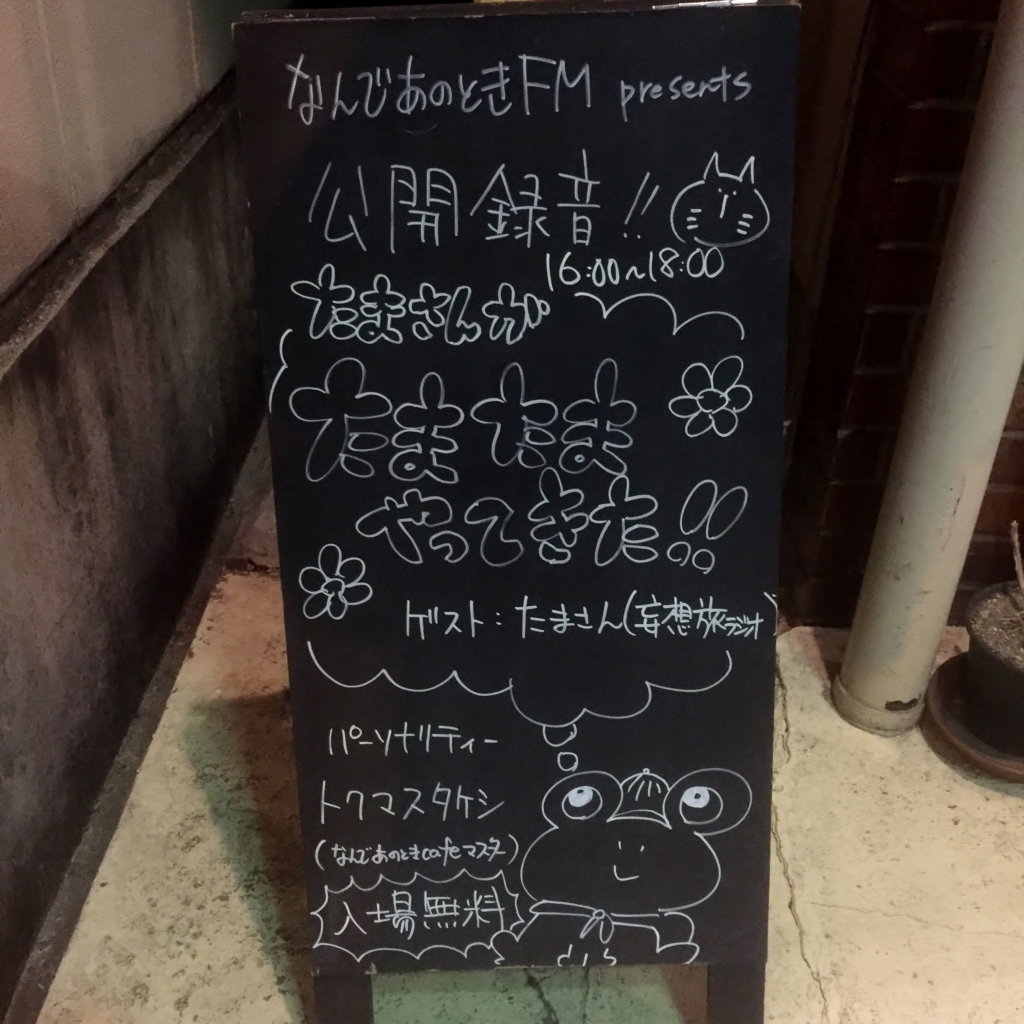 なんであのときFM presents
公開録音!!
16:00~18:00
たまさんが
たまたま
やってきた!!
ゲスト:たまさん(妄想旅ラジオ)
パーソナリティー
トクマスタケシ
(なんであのときcafeマスター)
入場無料